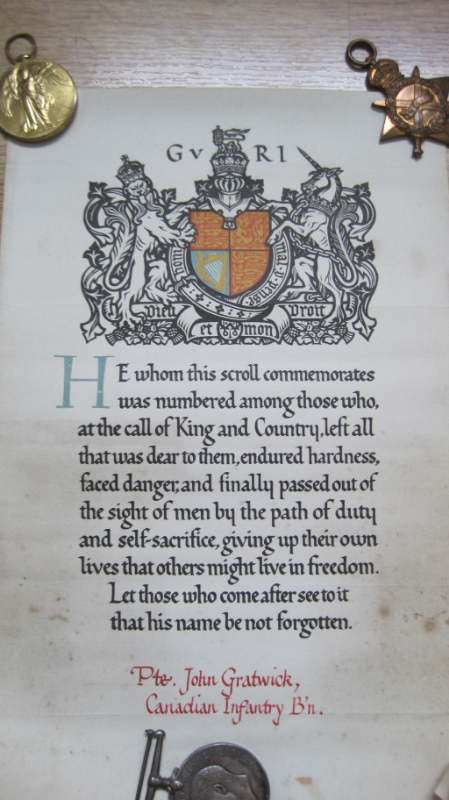 G V R I
Honi soit qui mal y pense
Dieu et mon Droit
HE whom this scroll commemorates
was numbered among those who,
at the call of King and Country, left all
that was dear to them, endured hardness,
faced danger, and finally passed out of
the sight of men by the path of duty
and self-sacrifice, giving up their own
lives that others might live in freedom.
Let those who come after see to it
that his name be not forgotten.
Pte. John Gratwick,
Canadian Infantry B'n.